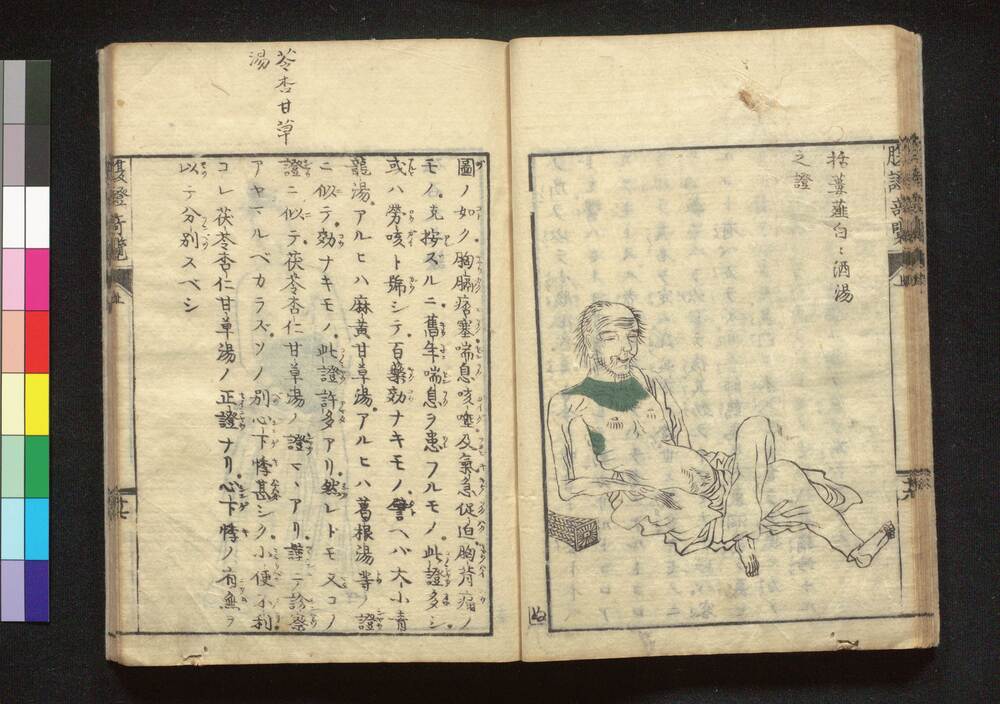 腹證奇覧
上
括蔞薤白〻酒湯
之證
圖ノ如ク胸膈痞塞喘息咳唾及氣急促迫胸背痛ノ
モノ克按スルニ舊年喘息ヲ患フルモノ此證多シ
或ハ勞咳ト歸シテ百藥効ナキモノ譬ヘバ大小青
龍湯アルヒハ麻黄甘草湯アルヒハ葛根湯等ノ證
ニ似テ効ナキモノ此證許多アリ然レドモ又コノ
證ニ似テ茯苓杏仁甘草湯ノ證マヽアリ謹テ診察
アヤマルベカラズソノ別心下悸甚シク小便不利
コレ茯苓杏仁甘草湯ノ正證ナリ心下悸ノ有無ヲ
以テ分別スベシ
苓杏甘草
湯
腹證奇覧
上